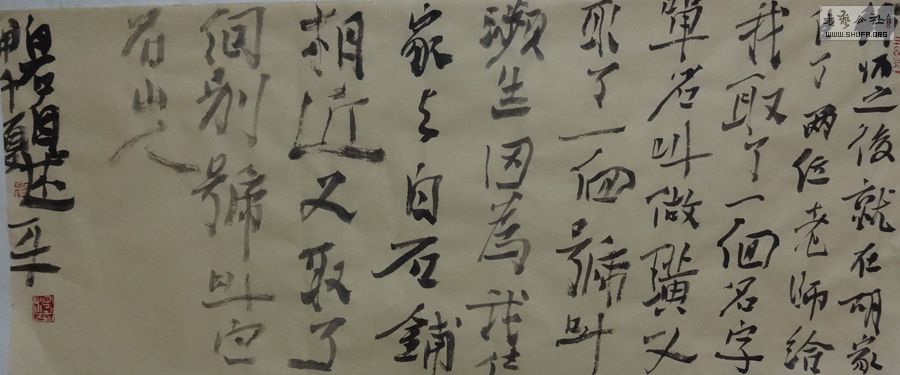 拜师之後就在胡家
住了两位老师给
我取了一個名字
單名叫做璜又
取了一個號叫
瀕生因為我住
家与白石鋪
相近又取了
個别號叫白
石山人
白石自述
书艺公社
WWW.SHUFA.ORG